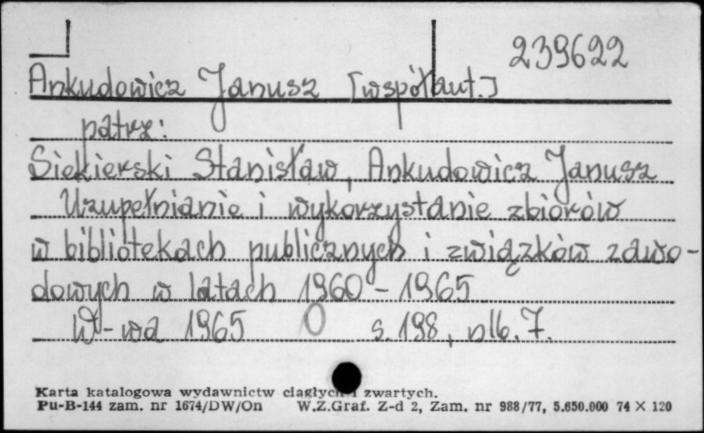 239622
Ankudowicz Janusz [współaut.]
patrz:
Siekierski Stanisław, Ankudowicz Janusz
Uzupełnianie i wykorzystanie zbiorów
w bibliotekach publicznych i związków zawo-
dowych w latach 1960-1965
W-wa 1965 O s. 198, nlb. 7.
Karta katalogowa wydawnictw ciągłych i zwartych.
Pu-B-144 zam. nr 1674/DW/On W.Z.Graf. Z-d 2, Zam. nr 988/77, 5.650.000 74 X 120